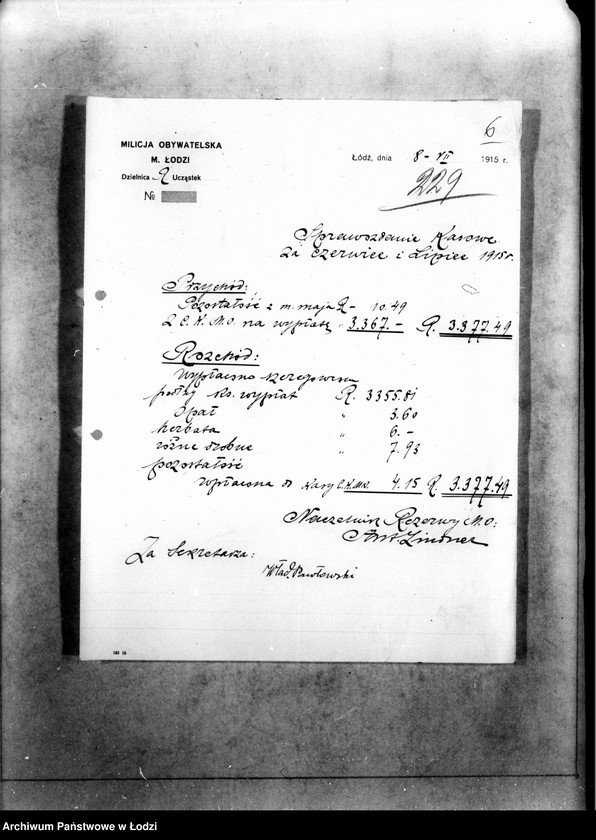 6
MILICJA OBYWATELSKA
M. ŁODZI
Dzielnica R Ucząstek
№
Łódź, dnia 8-VII 1915 r.
229
Sprawozdanie Kasowe
za czerwiec i Lipiec 1915 r.
Przychód:
Pozostałość z m. maja R - 10.49
Z C. K. M. O. na wypłatę " 3.367.- R. 3.377.49
Rozchód:
Wypłacono szeregowcom
podług ks. wypłat R. 3355.81
Opał " 3.60
herbata " 6.-
różne drobne " 7.93
pozostałość
wpłacona do Kasy C.K.M.O. 4.15 R. 3.377.49
Naczelnik Rezerwy M.O:
Ant. Lindner
Za Sekretarza:
Wład. Pawłowski
Archiwum Państwowe w Łodzi